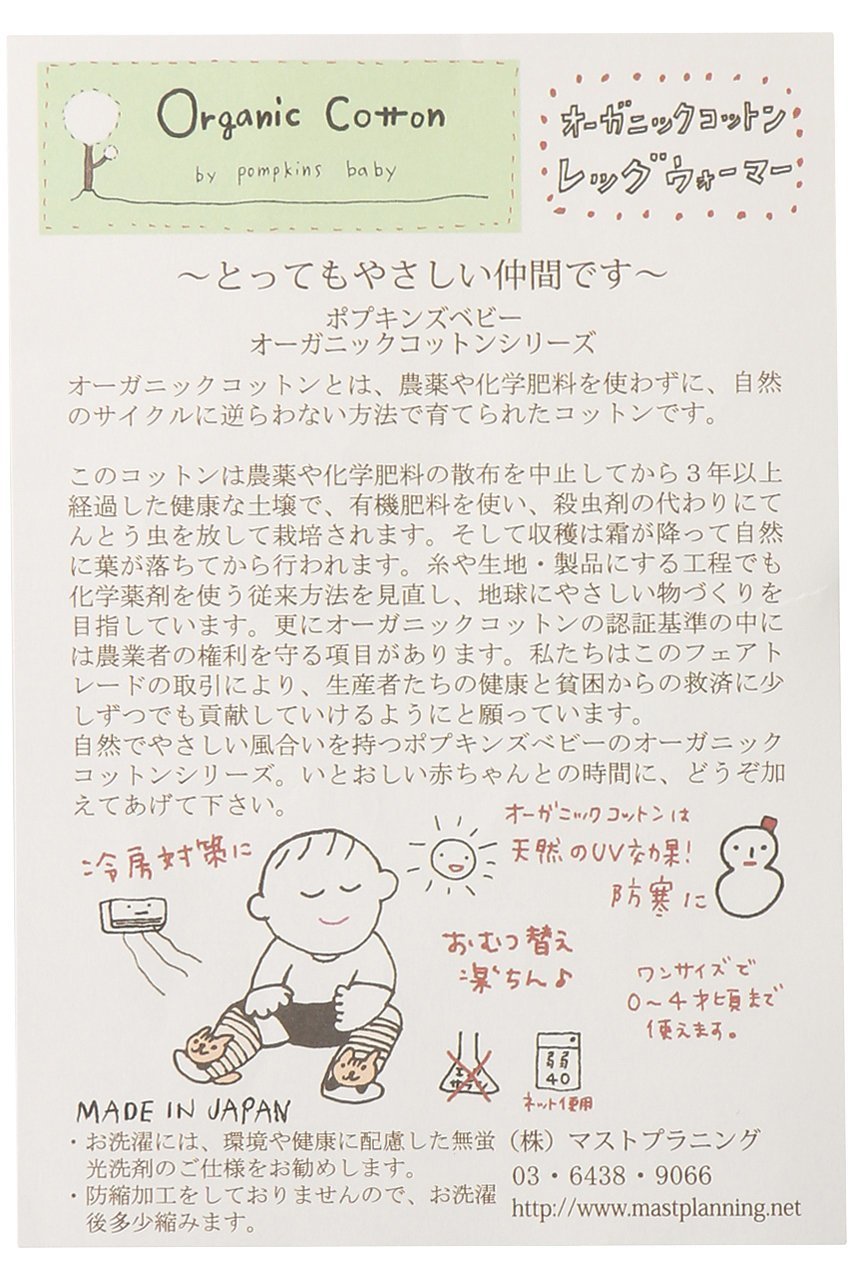 Organic Cotton
by pompkins baby
オーガニックコットン
レッグウォーマー
～とってもやさしい仲間です～
ポプキンズベビー
オーガニックコットンシリーズ
オーガニックコットンとは、農薬や化学肥料を使わずに、自然
のサイクルに逆らわない方法で育てられたコットンです。
このコットンは農薬や化学肥料の散布を中止してから３年以上
経過した健康な土壌で、有機肥料を使い、殺虫剤の代わりにて
んとう虫を放して栽培されます。そして収穫は霜が降って自然
に葉が落ちてから行われます。糸や生地・製品にする工程でも
化学薬剤を使う従来方法を見直し、地球にやさしい物づくりを
目指しています。更にオーガニックコットンの認証基準の中に
は農業者の権利を守る項目があります。私たちはこのフェアト
レードの取引により、生産者たちの健康と貧困からの救済に少
しずつでも貢献していけるようにと願っています。
自然でやさしい風合いを持つポプキンズベビーのオーガニック
コットンシリーズ。いとおしい赤ちゃんとの時間に、どうぞ加
えてあげて下さい。
冷房対策に
オーガニックコットンは
天然のUV効果!
防寒に
おむつ替え
楽ちん♪
ワンサイズで
0～4才頃まで
使えます。
エンソ
サラシ
弱
40
ネット使用
MADE IN JAPAN
・お洗濯には、環境や健康に配慮した無蛍
光洗剤のご仕様をお勧めします。
・防縮加工をしておりませんので、お洗濯
後多少縮みます。
（株）マストプラニング
03・6438・9066
http://www.mastplanning.net